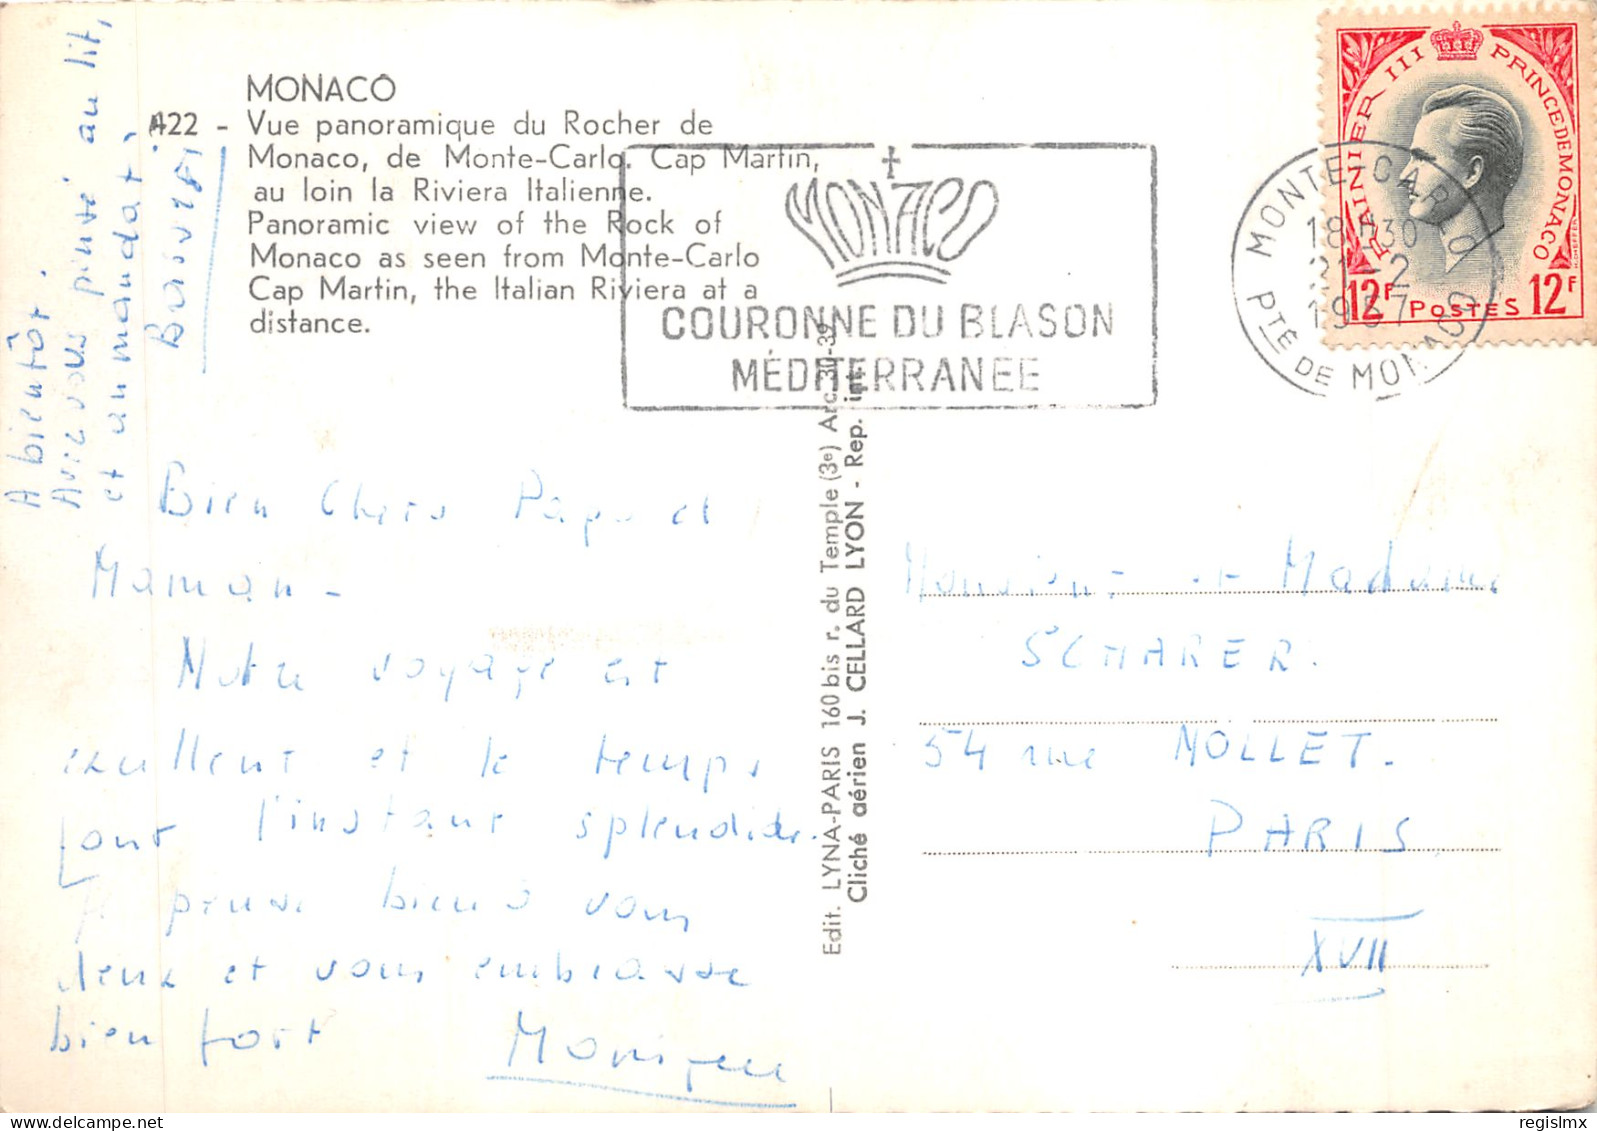 MONACO
422 - Vue panoramique du Rocher de
Monaco, de Monte-Carlo. Cap Martin,
au loin la Riviera Italienne.
Panoramic view of the Rock of
Monaco as seen from Monte-Carlo
Cap Martin, the Italian Riviera at a
distance.
MONACO
COURONNE DU BLASON
MÉDITERRANEE
MONTE-CARLO
18H30
21-2
1957
PTÉ DE MONACO
RAINIER III PRINCE DE MONACO
12F POSTES 12F
A bientôt.
Avez vous pensé au lit,
et au mandat.
Bien Chers Papa et
Maman -
Notre voyage est
excellent et le temps
pour l'instant splendide.
Je pense bien à vous
deux et vous embrasse
bien fort Monique
Edit. LYNA-PARIS 160 bis r. du Temple (3e) Arc. 30-39
Cliché aérien J. CELLARD LYON - Rep. int.
Monsieur et Madame
SCHARER.
54 rue NOLLET.
PARIS
XVII
regislmx